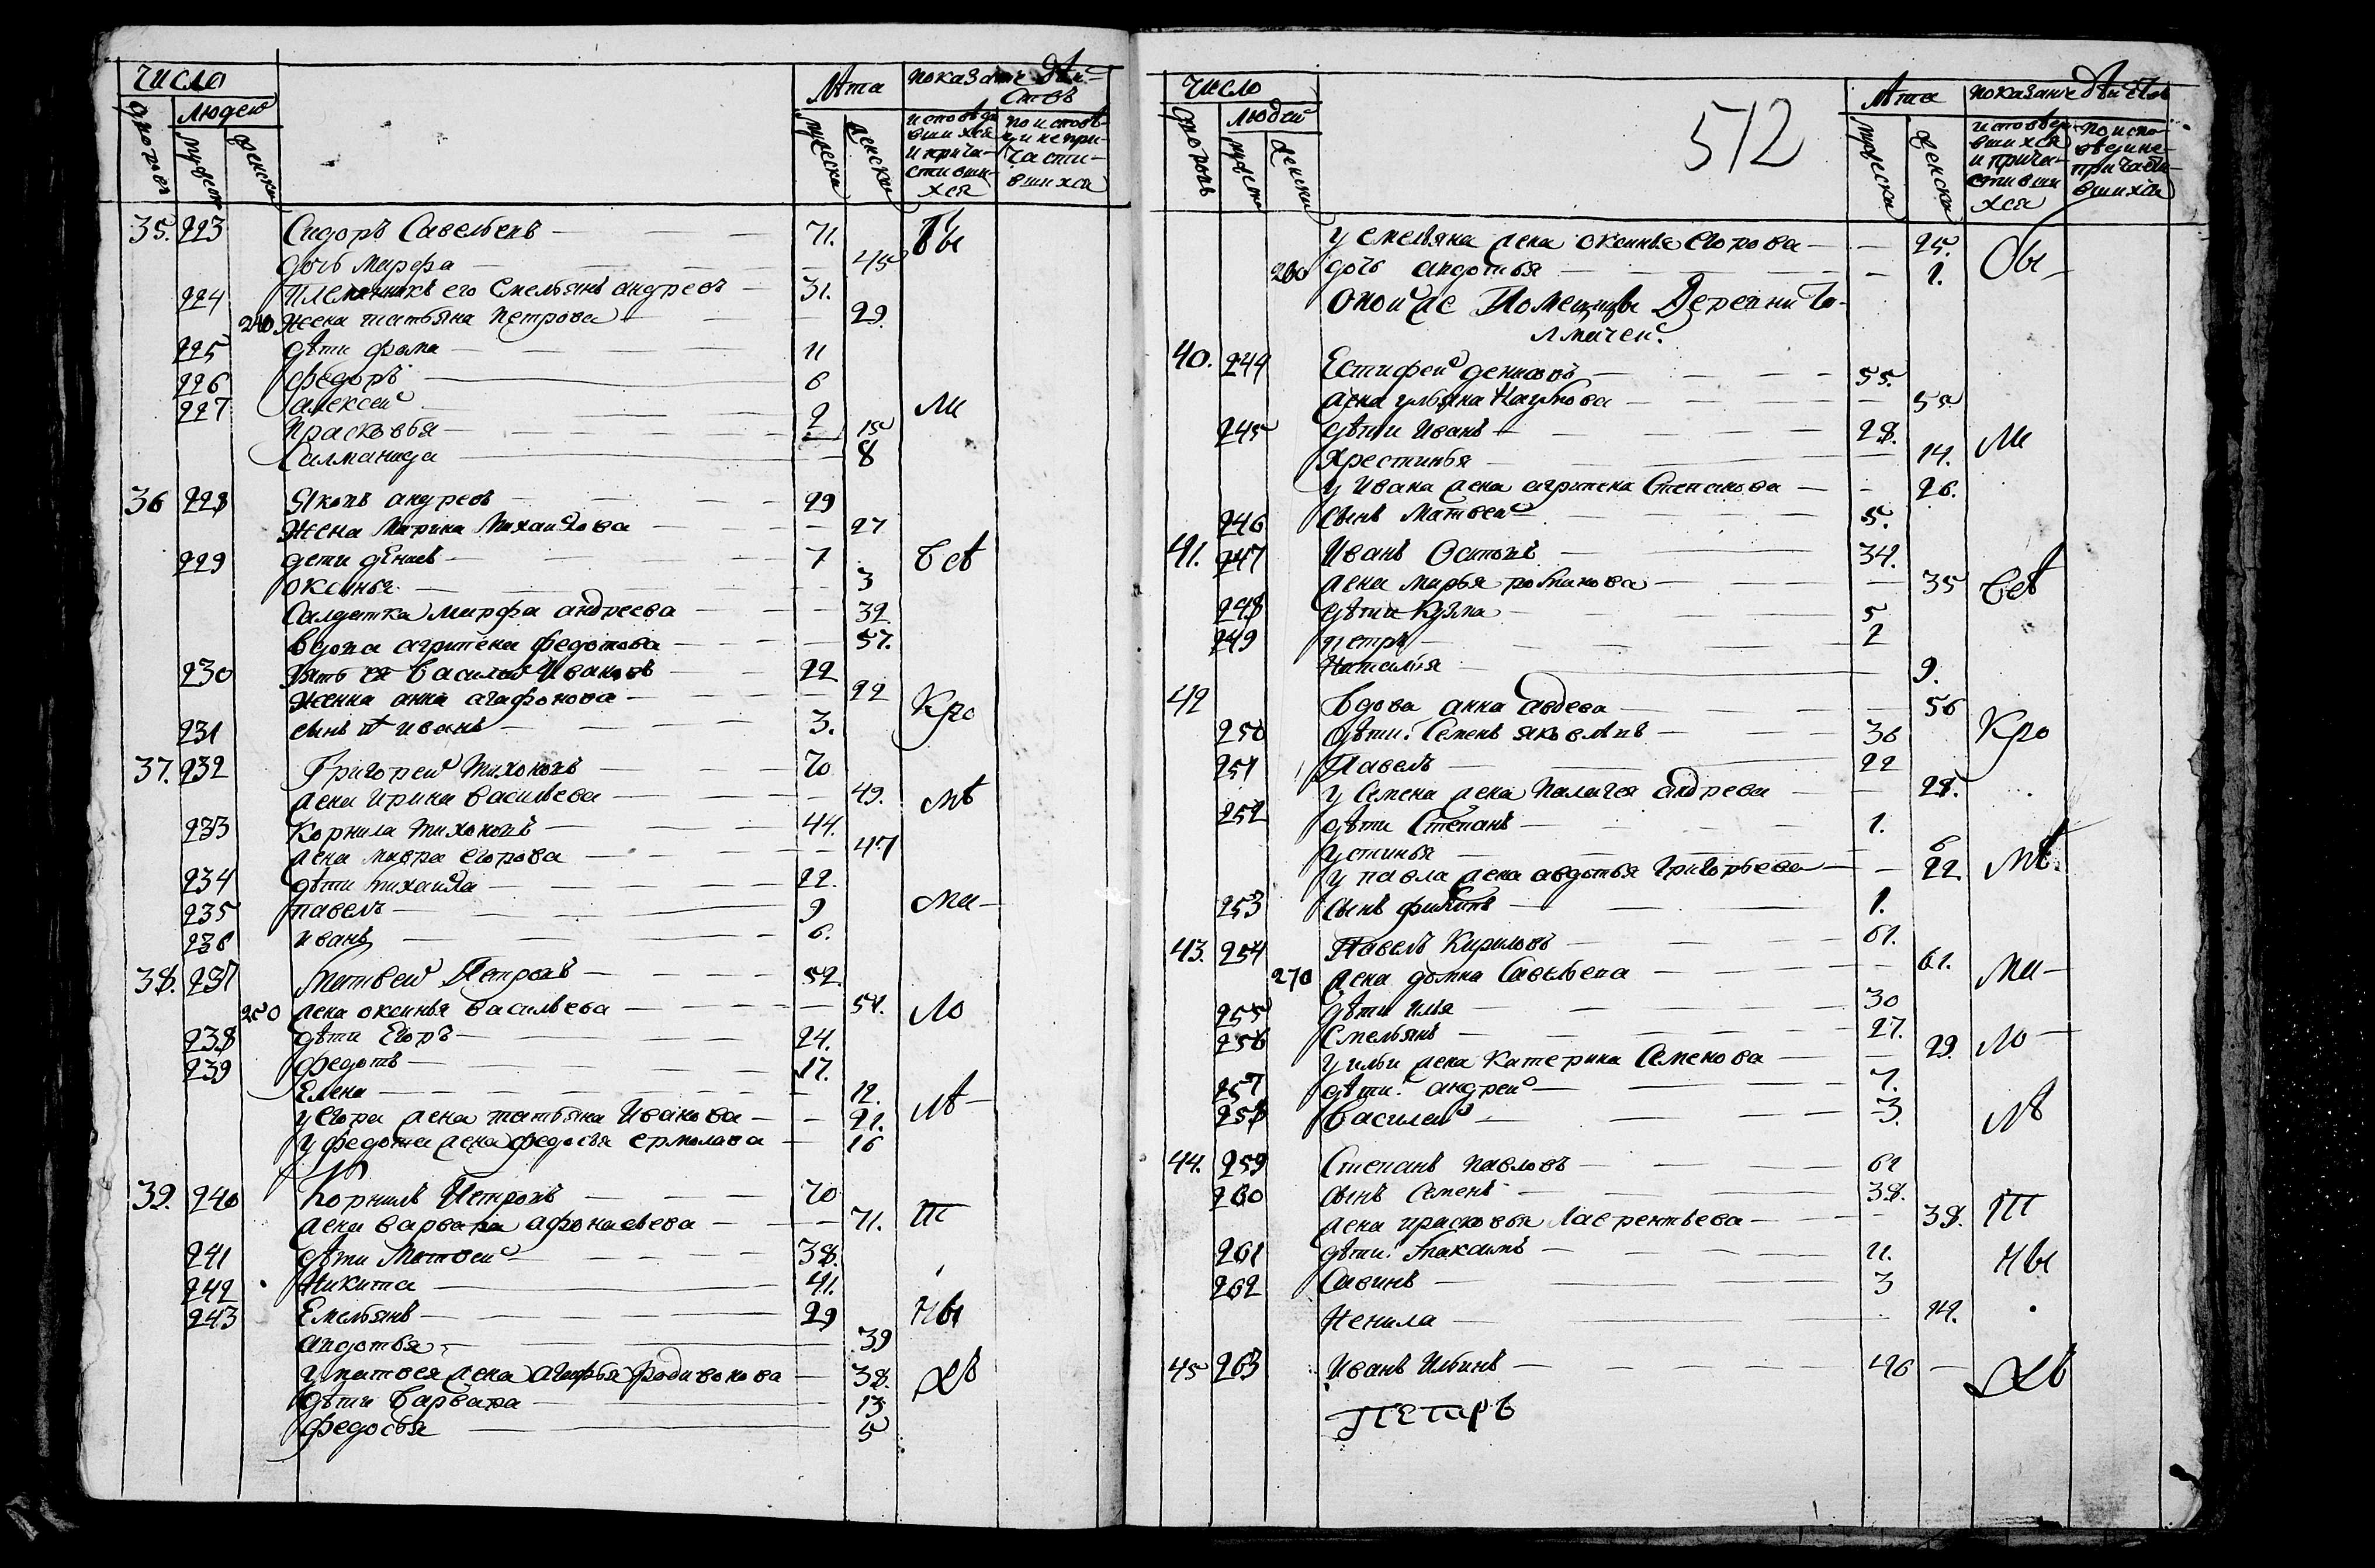 число
людей
Лѣта показание дѣй-
ствъ
дворовъ мужеска женска мужеска женска исповѣдавшихся и причастившихся по исповѣди не причастившихся
35. 223 Сидоръ Савельевъ 71. Бы
дочь Марфа 45
224 племянникъ его Емельянъ андревъ 31.
240 жена татьяна Петрова 29.
225 дѣти фома 11
226 федоръ 6
227 алексей 2 ли
Прасковья 15
Салманида 8
36 228 Яковъ андревъ 29
жена Марина Михаилова 27
229 дети денисъ 7 Всѣ
оксинья 3
Салдатка марфа андреева 32
вдова агрипена федотова 57.
230 зять ея Василей Ивановъ 22
женна анна агафонова 22 Кро
231 сынъ иванъ 3.
37. 232 Григорей Тихоновъ 70
жена Ирина васильева 49. мѣ
233 Корнила Тихоновъ 44.
жена мавра егорова 47
234 дѣти михаила 22.
235 павелъ 9 ма
236 иванъ 6.
38. 237 Матвей Петровъ 52
250 жена оксинья васильева 54. ло
238 дѣти Егоръ 24.
239 федотъ 17.
Елена 12.
у егора жена татьяна Иванова 21. лѣ
у федота жена федосья ермолава 16
39. 240 Корнилъ Петровъ 70
жена варвара афонасьева 71. т
241 дѣти Матвей 38.
242 Никита 41.
243 Емельянъ 29 ны
авдотья 39
у матвея жена агафья родивонова 38. хъ
дѣти Варвара 13
федосья 5
512
число
людей
Лѣта показание дѣйствъ
дворовъ мужеска женска мужеска женска исповѣдавшихся и причастившихся по исповѣди не причастившихся
у емельяна жена оксинья егорова 25. Бы
260 дочь авдотья 1.
Оной же Помещицы Деревни То-
лмачей.
40. 244 Естифей денисовъ 55.
жена ульяна Наумова 55
245 дѣти Иванъ 28. ли
Хрестинья 14.
у Ивана жена агрипена Степанова 26.
246 сынъ Матвей 5.
41. 247 Иванъ Осиповъ 34.
жена марья романова 35 Всѣ
248 дѣти Кузма 5
249 петръ 2
Наталия 9.
42 Вдова анна авдева 56
250 дѣти Семенъ яковлевъ 36 Кро
251 Павелъ 22
у Семена жена палагея андрева 28.
252 дѣти Степанъ 1.
устинья 6
у павла жена авдотья Григорьева 22 мѣ
253 сынъ филипъ 1.
43. 254 Павелъ Кириловъ 61.
270 жена домна Савельева 61. ма
255 дѣти илья 30
256 Емельянъ 27.
у ильи жена Катерина Семенова 29. ло
257 дѣти андрей 7.
258 Василей 3. лѣ
44. 259 Степанъ павловъ 61
260 сынъ Семенъ 38.
жена прасковья Лаврентьева 38. т
261 дѣти Максимъ 11. ны
262 Савинъ 3
Ненила 14.
45 263 Иванъ Ильинъ 46 хъ
Петаръ